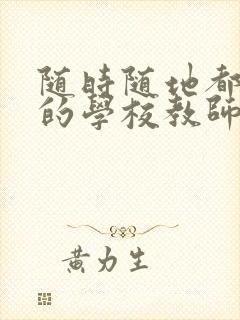 随時随地都
的學校教師
黃力生